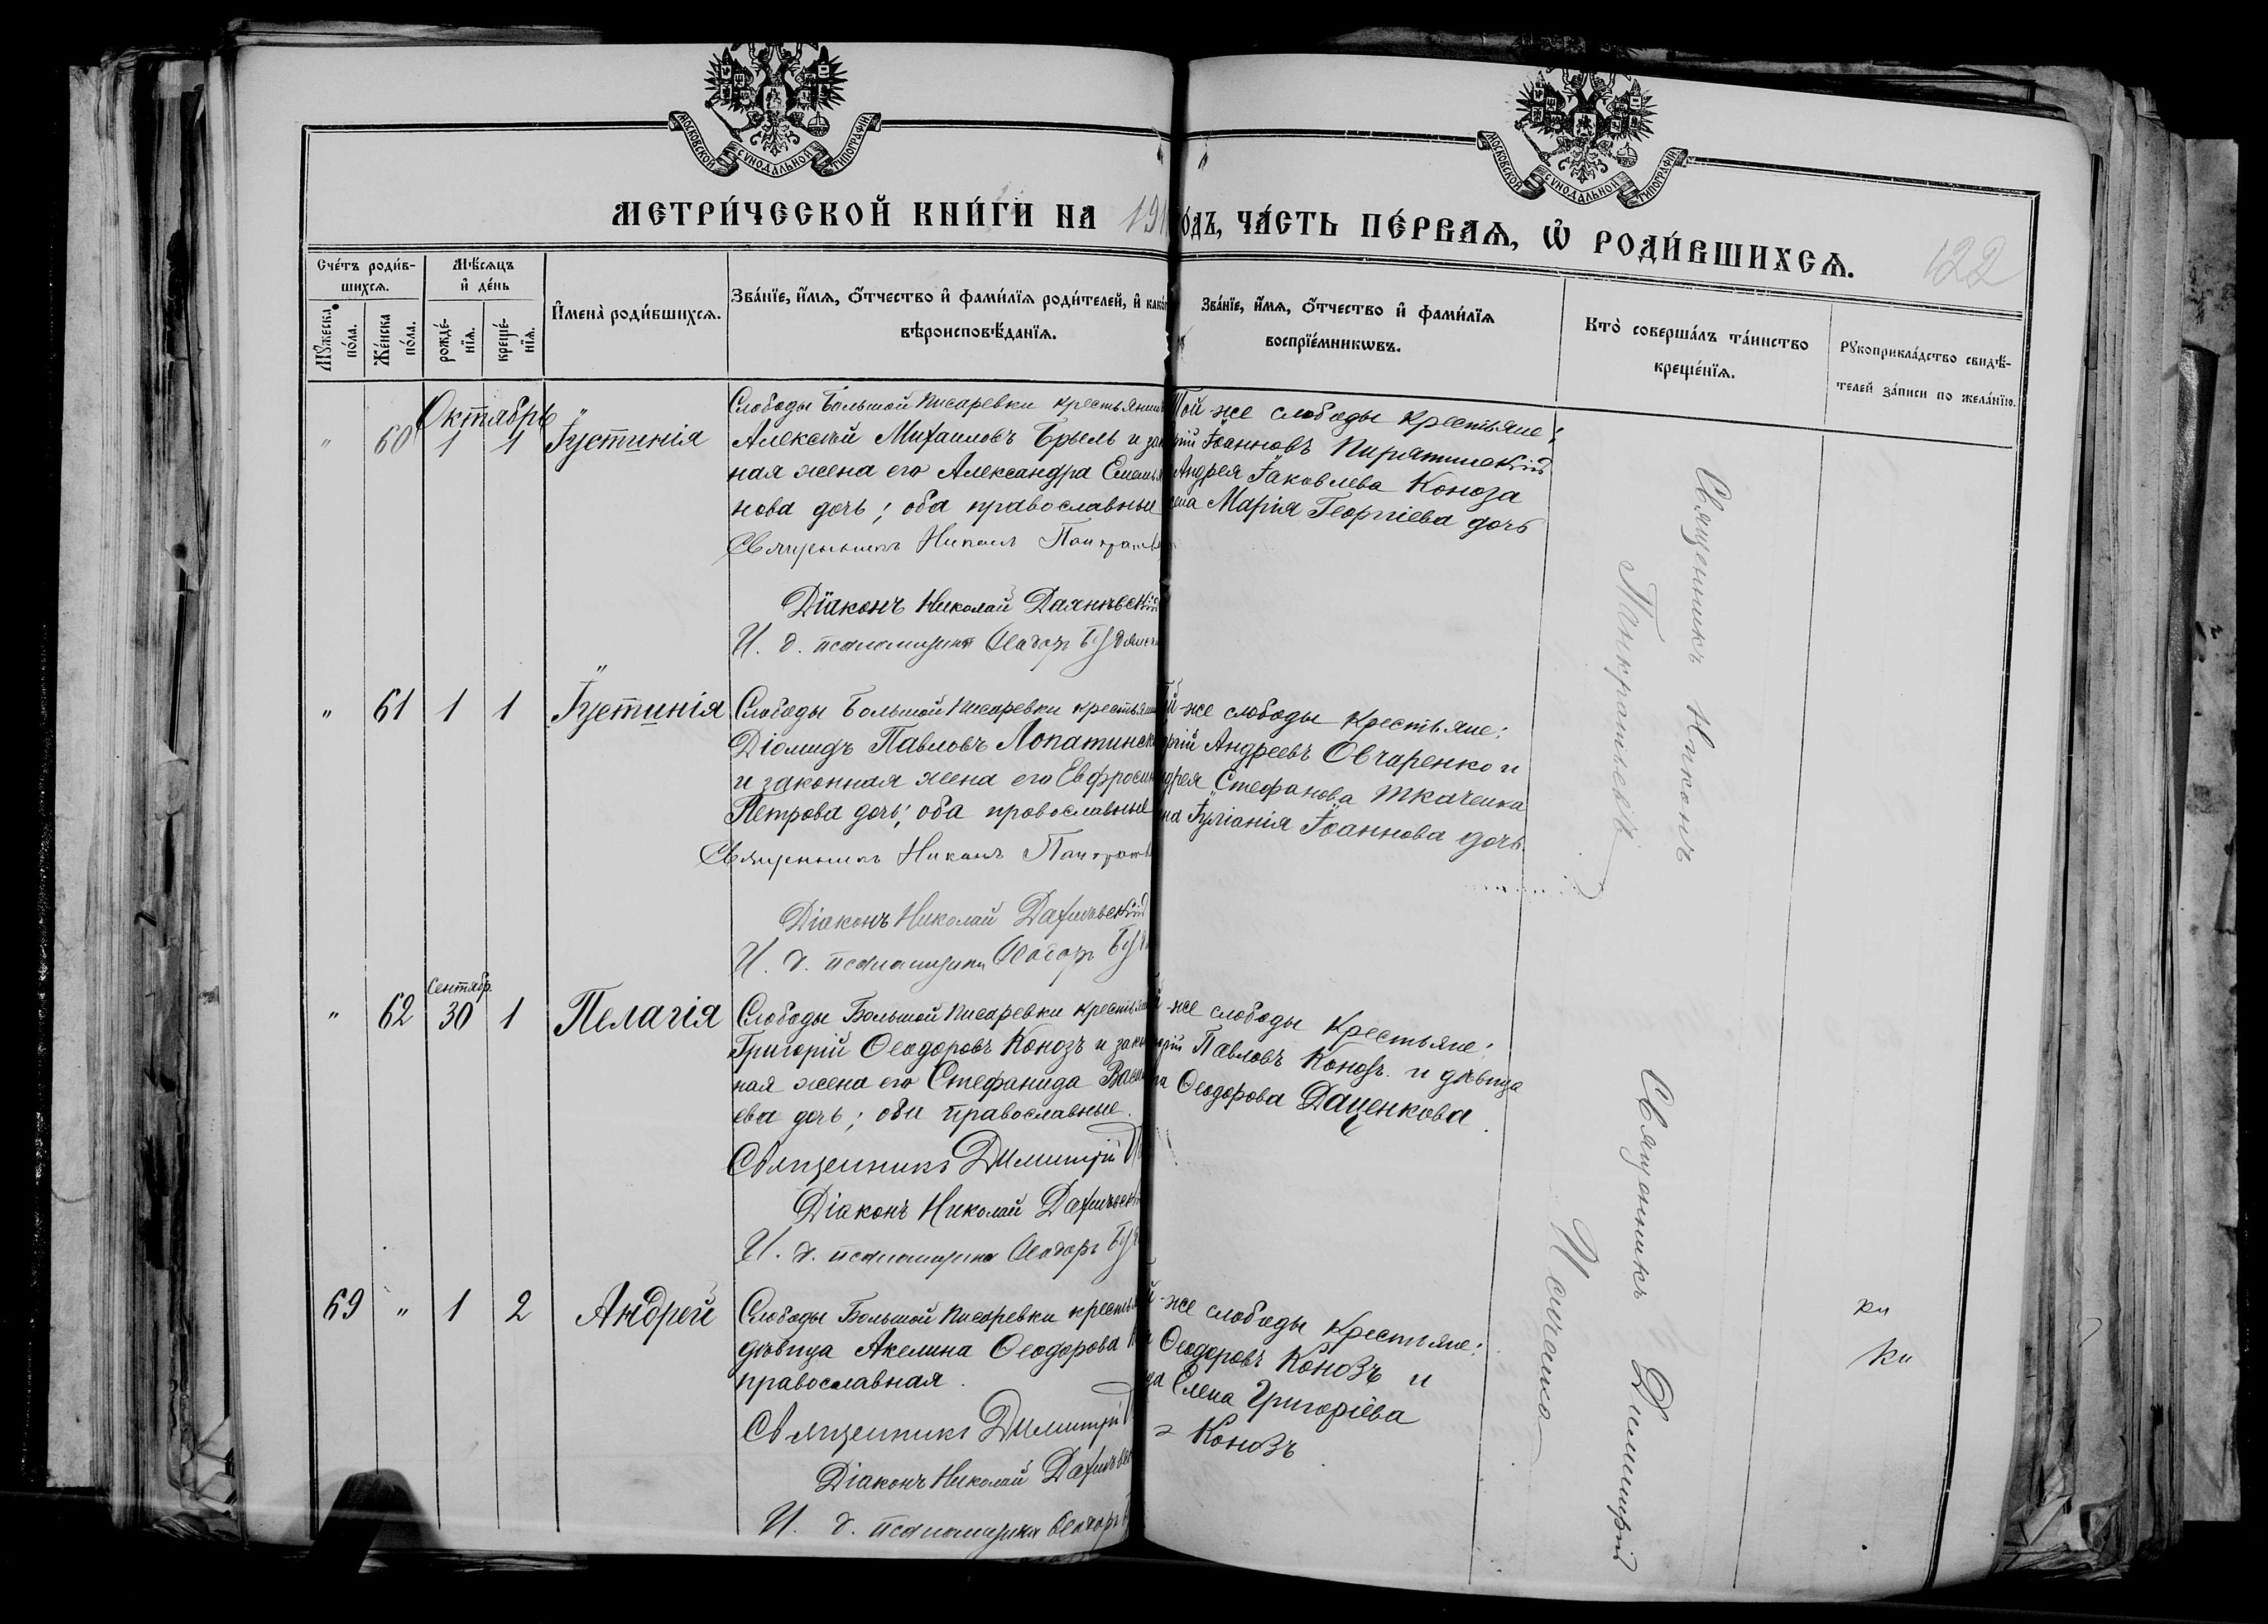 МОСКОВСКОЙ СУНОДАЛЬНОЙ ТИПОГРАФІИ
МОСКОВСКОЙ СУНОДАЛЬНОЙ ТИПОГРАФІИ
МЕТРИ́ЧЕСКОЙ КНИ́ГИ НА 191
О́ДЪ, ЧА́СТЬ ПЕ́РВАѦ, Ѡ҆ РОДИ́ВШИХСѦ.
122
Сче́тъ роди́в-
шихсѧ.
Мѣ́сѧцъ
и҆ де́нь
Мꙋ́жеска по́ла.
Же́нска по́ла.
рожде́-
нїѧ.
креще́-
нїѧ.
И҆мена̀ роди́вшихсѧ.
Зва́нїе, и҆́мѧ, ѻ҆́тчество и҆ фами́лїѧ роди́телей, и҆ како́
вѣроисповѣ́данїѧ.
Зва́нїе, и҆́мѧ, ѻ҆́тчество и҆ фами́лїѧ
воспрїе́мникѡвъ.
Кто̀ соверша́лъ та́инство
креще́нїѧ.
Рꙋкоприкла́дство свидѣ́-
телей за́писи по жела́нїю.
Октябрь
" 60 1 1 Іустинія
Слободы Большой Писаревки крестьянин
Алексѣй Михаиловъ Брыль и зак
ная жена его Александра Емелья
нова дочь; оба православные
Священникъ Никонъ Панкратьев
Діаконъ Николай
И. д. псаломщика Ѳеодоръ
Той же слободы крестьяне:
Іоанновъ Пирятинскій
Андрея Іаковлева Коноза
ена Марія Георгіева дочь
Священникъ Никонъ
Панкратьевъ
" 61 1 1 Іустинія
Слободы Большой Писаревки крестьянин
Діомидъ Павловъ Лопатинск
и законная жена его Евфросин
Петрова дочь; оба православные
Священникъ Никонъ Панкратьев
Діаконъ Николай
И. д. псаломщика Ѳеодоръ
й-же слободы крестьяне:
ргій Андреевъ Овчаренко и
дрея Стефанова Ткаченка
на Іуліанія Іоаннова дочь
Сентябр.
" 62 30 1 Пелагія
Слободы Большой Писаревки крестьян
Григорій Ѳеодоровъ Конозъ и закон
ная жена его Стефанида Васил
ева дочь; оба православные.
Священникъ Димитрій
Діаконъ Николай
И. д. псаломщика Ѳеодоръ
й-же слободы крестьяне:
Павловъ Конозъ и дѣвица
Ѳеодорова Даценкова.
Священникъ Димитрій
69 " 1 2 Андрей
Слободы Большой Писаревки крестья
дѣвица Акелина Ѳеодорова
православная.
Священникъ Димитрій
Діаконъ Николай
И. д. псаломщика Ѳеодоръ
й-же слободы крестьяне:
Ѳеодоровъ Конозъ и
ца Елена Григоріева
Конозъ